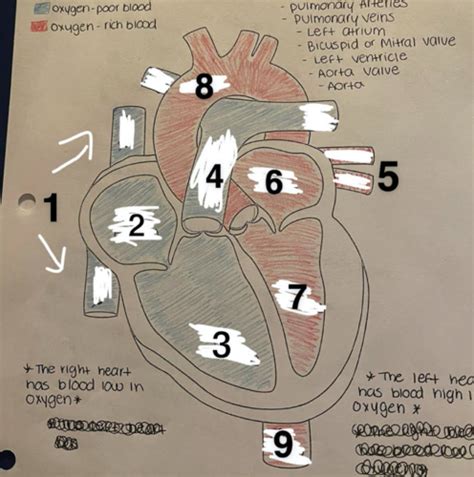 oxygen-poor blood
oxygen-rich blood
- pulmonary Arteries
- Pulmonary veins
- Left atrium
- Bicuspid or Mitral valve
- Left ventricle
- Aorta valve
- Aorta
8
4
6
5
1
2
7
3
* The right heart
has blood low in
oxygen *
* The left hea
has blood high i
oxygen *
9